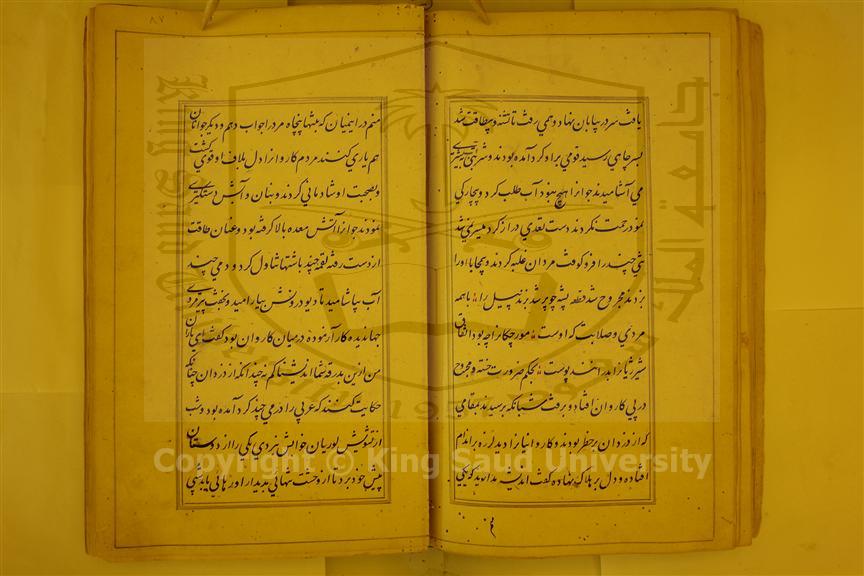 یافت سر در بیابان نهاد و همی رفت تا تشنه و بیطاقت شد
بسر چاهی رسید قومی برو گرد آمده بودند و شربتی آب به پشیزی
می آشامیدند جوانرا هیچ نبود آب طلب کرد و بیچارگی
نمود رحمت نکردند دست تعدی دراز کرد میسر نمی شد
تنی چند را فرو کوفت مردان غلبه کردند و بیمحابا او را
بزدند مجروح شد قطعه پشه چو پر شد بزند پیل را با همه
مردی و صلابت که اوست مورچگانرا چو بود اتفاق
شیر ژیانرا بدرانند پوست بحکم ضرورت خسته و مجروح
در پی کاروان افتاد و برفت شبانگه برسیدند بمقامی
که از دزدان پر خطر بود و کاروانیانرا دید لرزه بر اندام
افتاده و دل بر هلاک نهاده گفت اندیشه مدارید که یکی
۸۷
منم در اینمیان که بتنها پنجاه مرد را جواب دهم و دیگر جوانان
هم یاری کنند مردم کاروانرا دل بلاف او قوی گشت
و بصحبت او شادمانی کردند و بنان و آبش دستگیری
نمودند جوانرا آتش معده بالا گرفته بود و عنان طاقت
از دست رفته لقمه چند باشتها تناول کرد و دمی چند
آب بیاشامید تا دیو درونش بیارامید و بخفت پیر مردی
جهاندیده کار آزموده در میان کاروان بود گفت ای یاران
من ازین بدرقه شما اندیشناکم نه چندانکه از دزدان چنانکه
حکایت کنند که عربی را درمی چند گرد آمده بود و شب
از تشویش لوریان خوابش نبردی یکی را از دوستان
پیش خود برد تا از وحشت تنهائی بدیدار او رهائی یابد شبی
Copyright © King Saud University